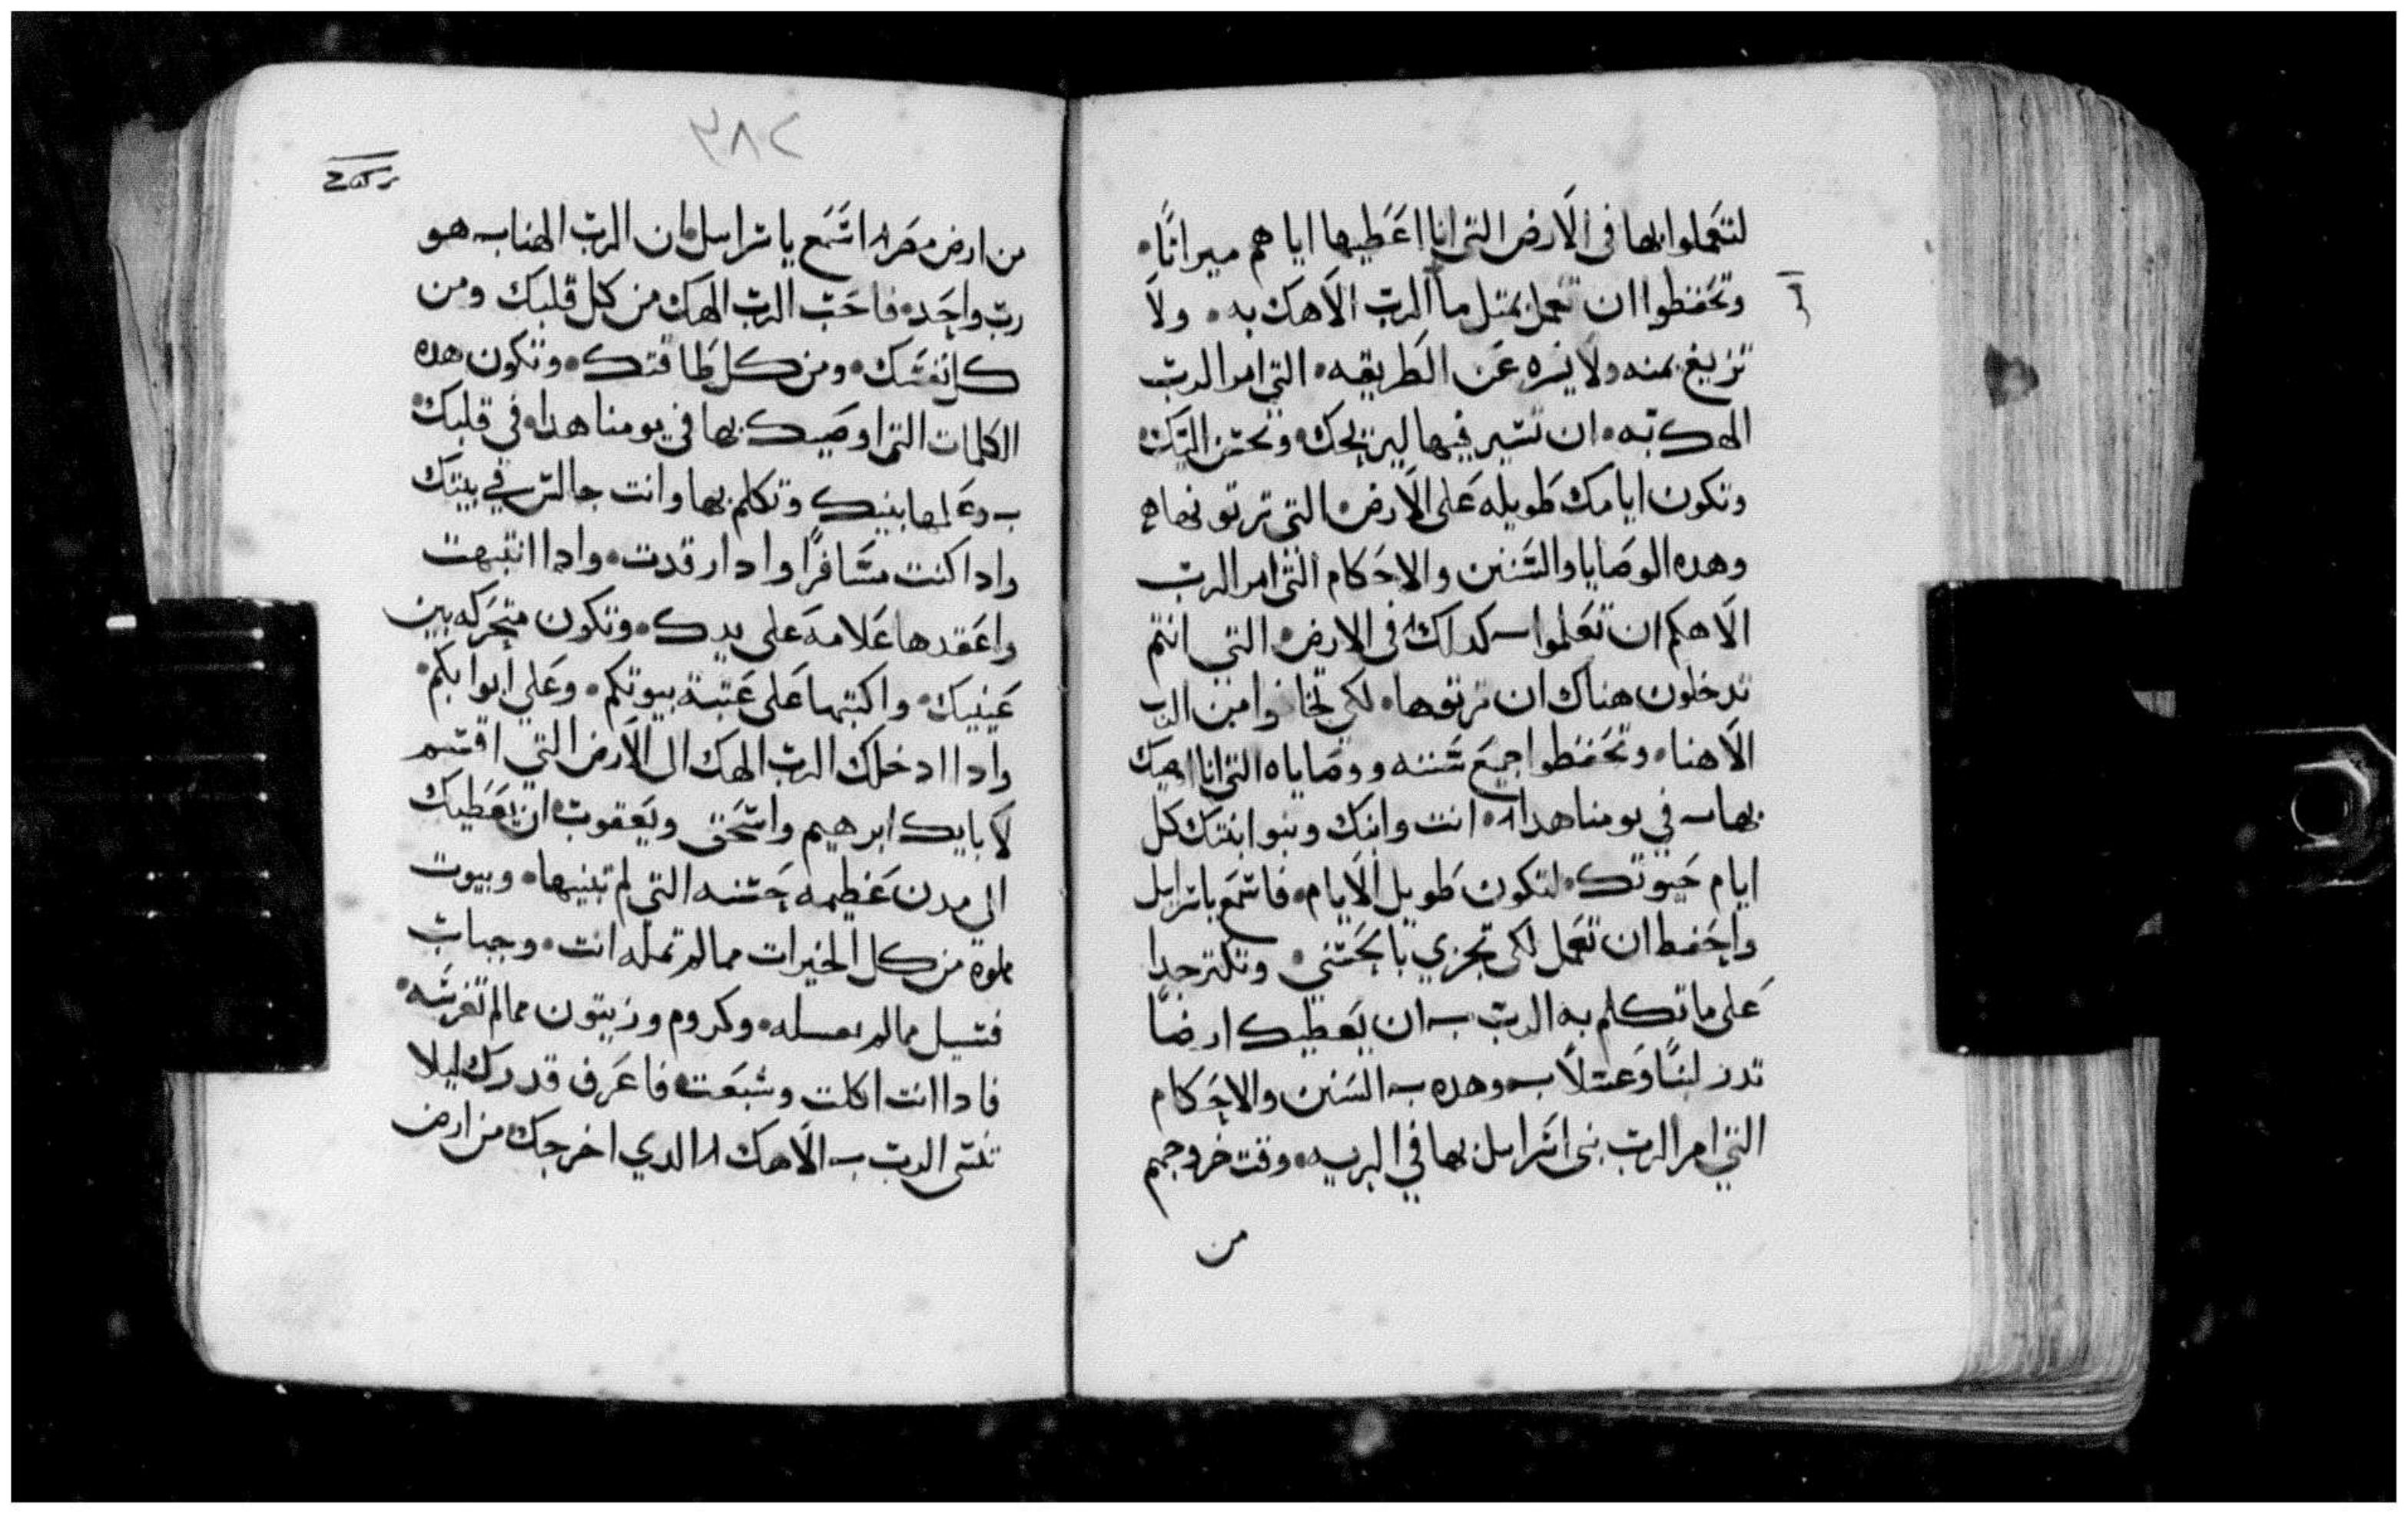 لتعملوا بها فى الارض التى انا اعطيها اياهم ميراثا
وتحفظوا ان تعمل بمتل ما الرب الاهك به ولا
امر
تزيغ يمنه ولا يسره عن الطريقه التى امر الرب
الهك به ان تسير فيها ليريحك وتحسن اليك
وتكون ايامك طويله على الارض التى ترتونها
وهده الوصايا والسنن والاحكام التى امر الرب
الاهكم ان تعلموا كداك فى الارض التى انتم
تدخلون هناك ان ترتوها لكى تخافوا من الرب
الاهنا وتحفظوا جميع سننه ووصاياه التى انا اوصيك
بها فى يومنا هدا انت وابنك وبنوا ابنتك كل
ايام حيوتك لتكون طويل الايام فاسمع يا سراىل
واحفط ان تعمل لكى تجزي بالحسنى وتكتر جدا
على ما تكلم به الرب ان يعطيك ارضا
تدر لبنا وعسلا وهده السنن والاحكام
التى امر الرب بنى اسراىل بها فى البريه وقت خروجهم
من
٣٨٢
من ارض مصر اسمع يا سراىل ان الرب الهنا هو
رب واحد فاحب الرب الهك من كل قلبك ومن
كل نفسك ومن كل طاقتك وتكون هده
الكلمات التى اوصيك بها في يومنا هدا فى قلبك
وعلمها بنيك وتكلم بها وانت جالس في بيتك
وادا كنت مسافرا وادا رقدت وادا انتبهت
واعقدها علامه على يدك وتكون متحركه بين
عينيك واكتبها على عتبة بيوتكم وعلى ابوابكم
وادا ادخلك الرب الهك الى الارض التي اقسم
لابايك ابرهيم واسحق ويعقوب ان يعطيك
الى مدن عظيمه حسنه التي لم تبنيها وبيوت
مملوة من كل الخيرات ممالم تمله انت وجباب
فسيل ممالم تفسله وكروم وزيتون ممالم تغرسه
فادا انت اكلت وشبعت فاعرف قدرك ليلا
تنسى الرب الاهك الدي اخرجك من ارض